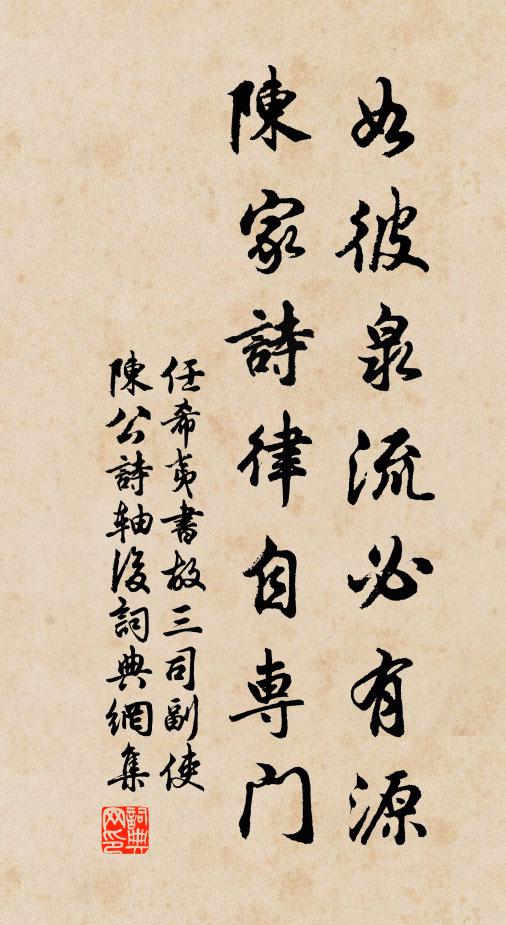 如彼泉流必有源
陳家詩律自專門
任希夷書故三司副使
陳公詩軸後詞典網集
詞典网印